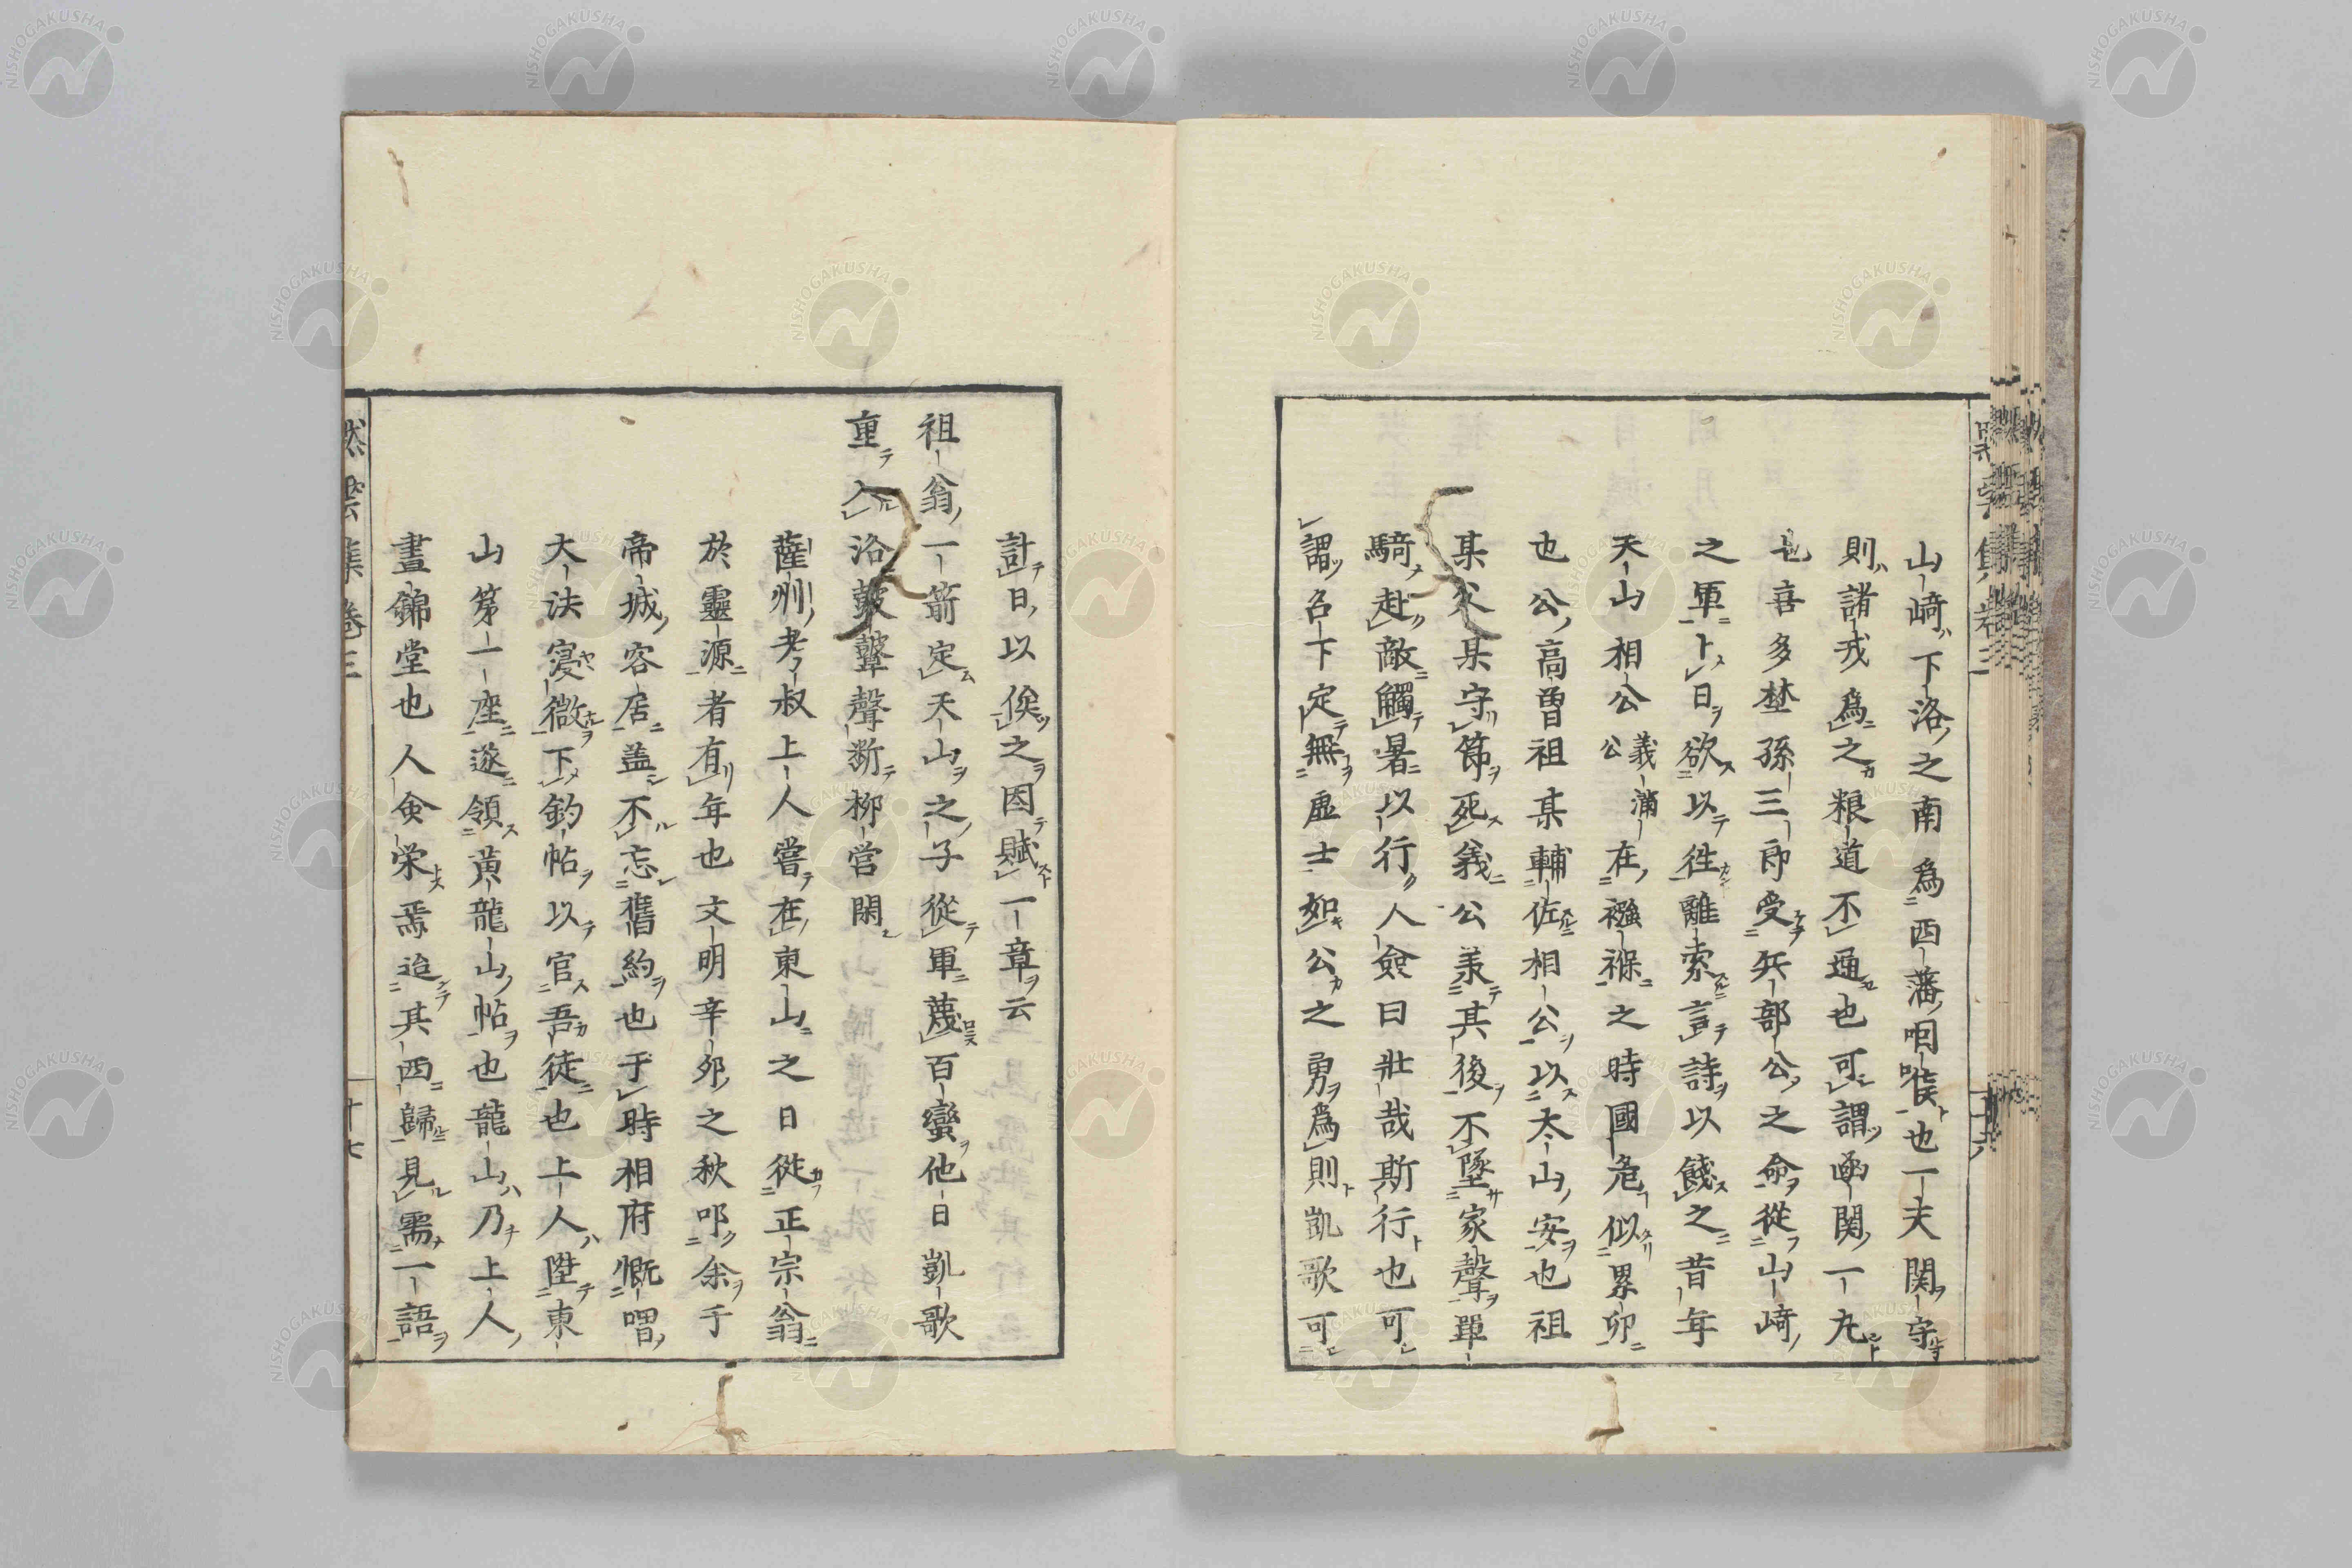 山﨑下洛之南為西藩咽喉也一夫関守
則諸戎為之粮道不通也可謂凾関一丸
也喜多埜孫三郎受兵部公之命從山﨑
之軍卜日欲以徃離索言詩以餞之昔年
天山相公義満公在襁褓之時國危似累卵
也公高曽祖某輔佐相公以太山安也祖
某父某守節死義公羕其後不墜家聲單
騎赴敵觸暑以行人僉曰壯哉斯行也可
謂名下定無虛士如公之勇為則凱歌可
計日以俟之因賦一章云
祖翁一箭定天山之子從軍蔑百蠻他日凱歌
重入洛鼓鼙聲断柳営閑
薩州老叔上人嘗在東山之日從正宗翁
於靈源者有年也文明辛夘之秋叩余于
帝城客居盖不忘舊約也于時相府慨喟
大法寖微下鈞帖以官吾徒也上人陞東
山第一座遂領黄龍山帖也龍山乃上人
晝錦堂也人僉栄焉迨其西歸見需一語
巻三
十七
NISHOGAKUSHA